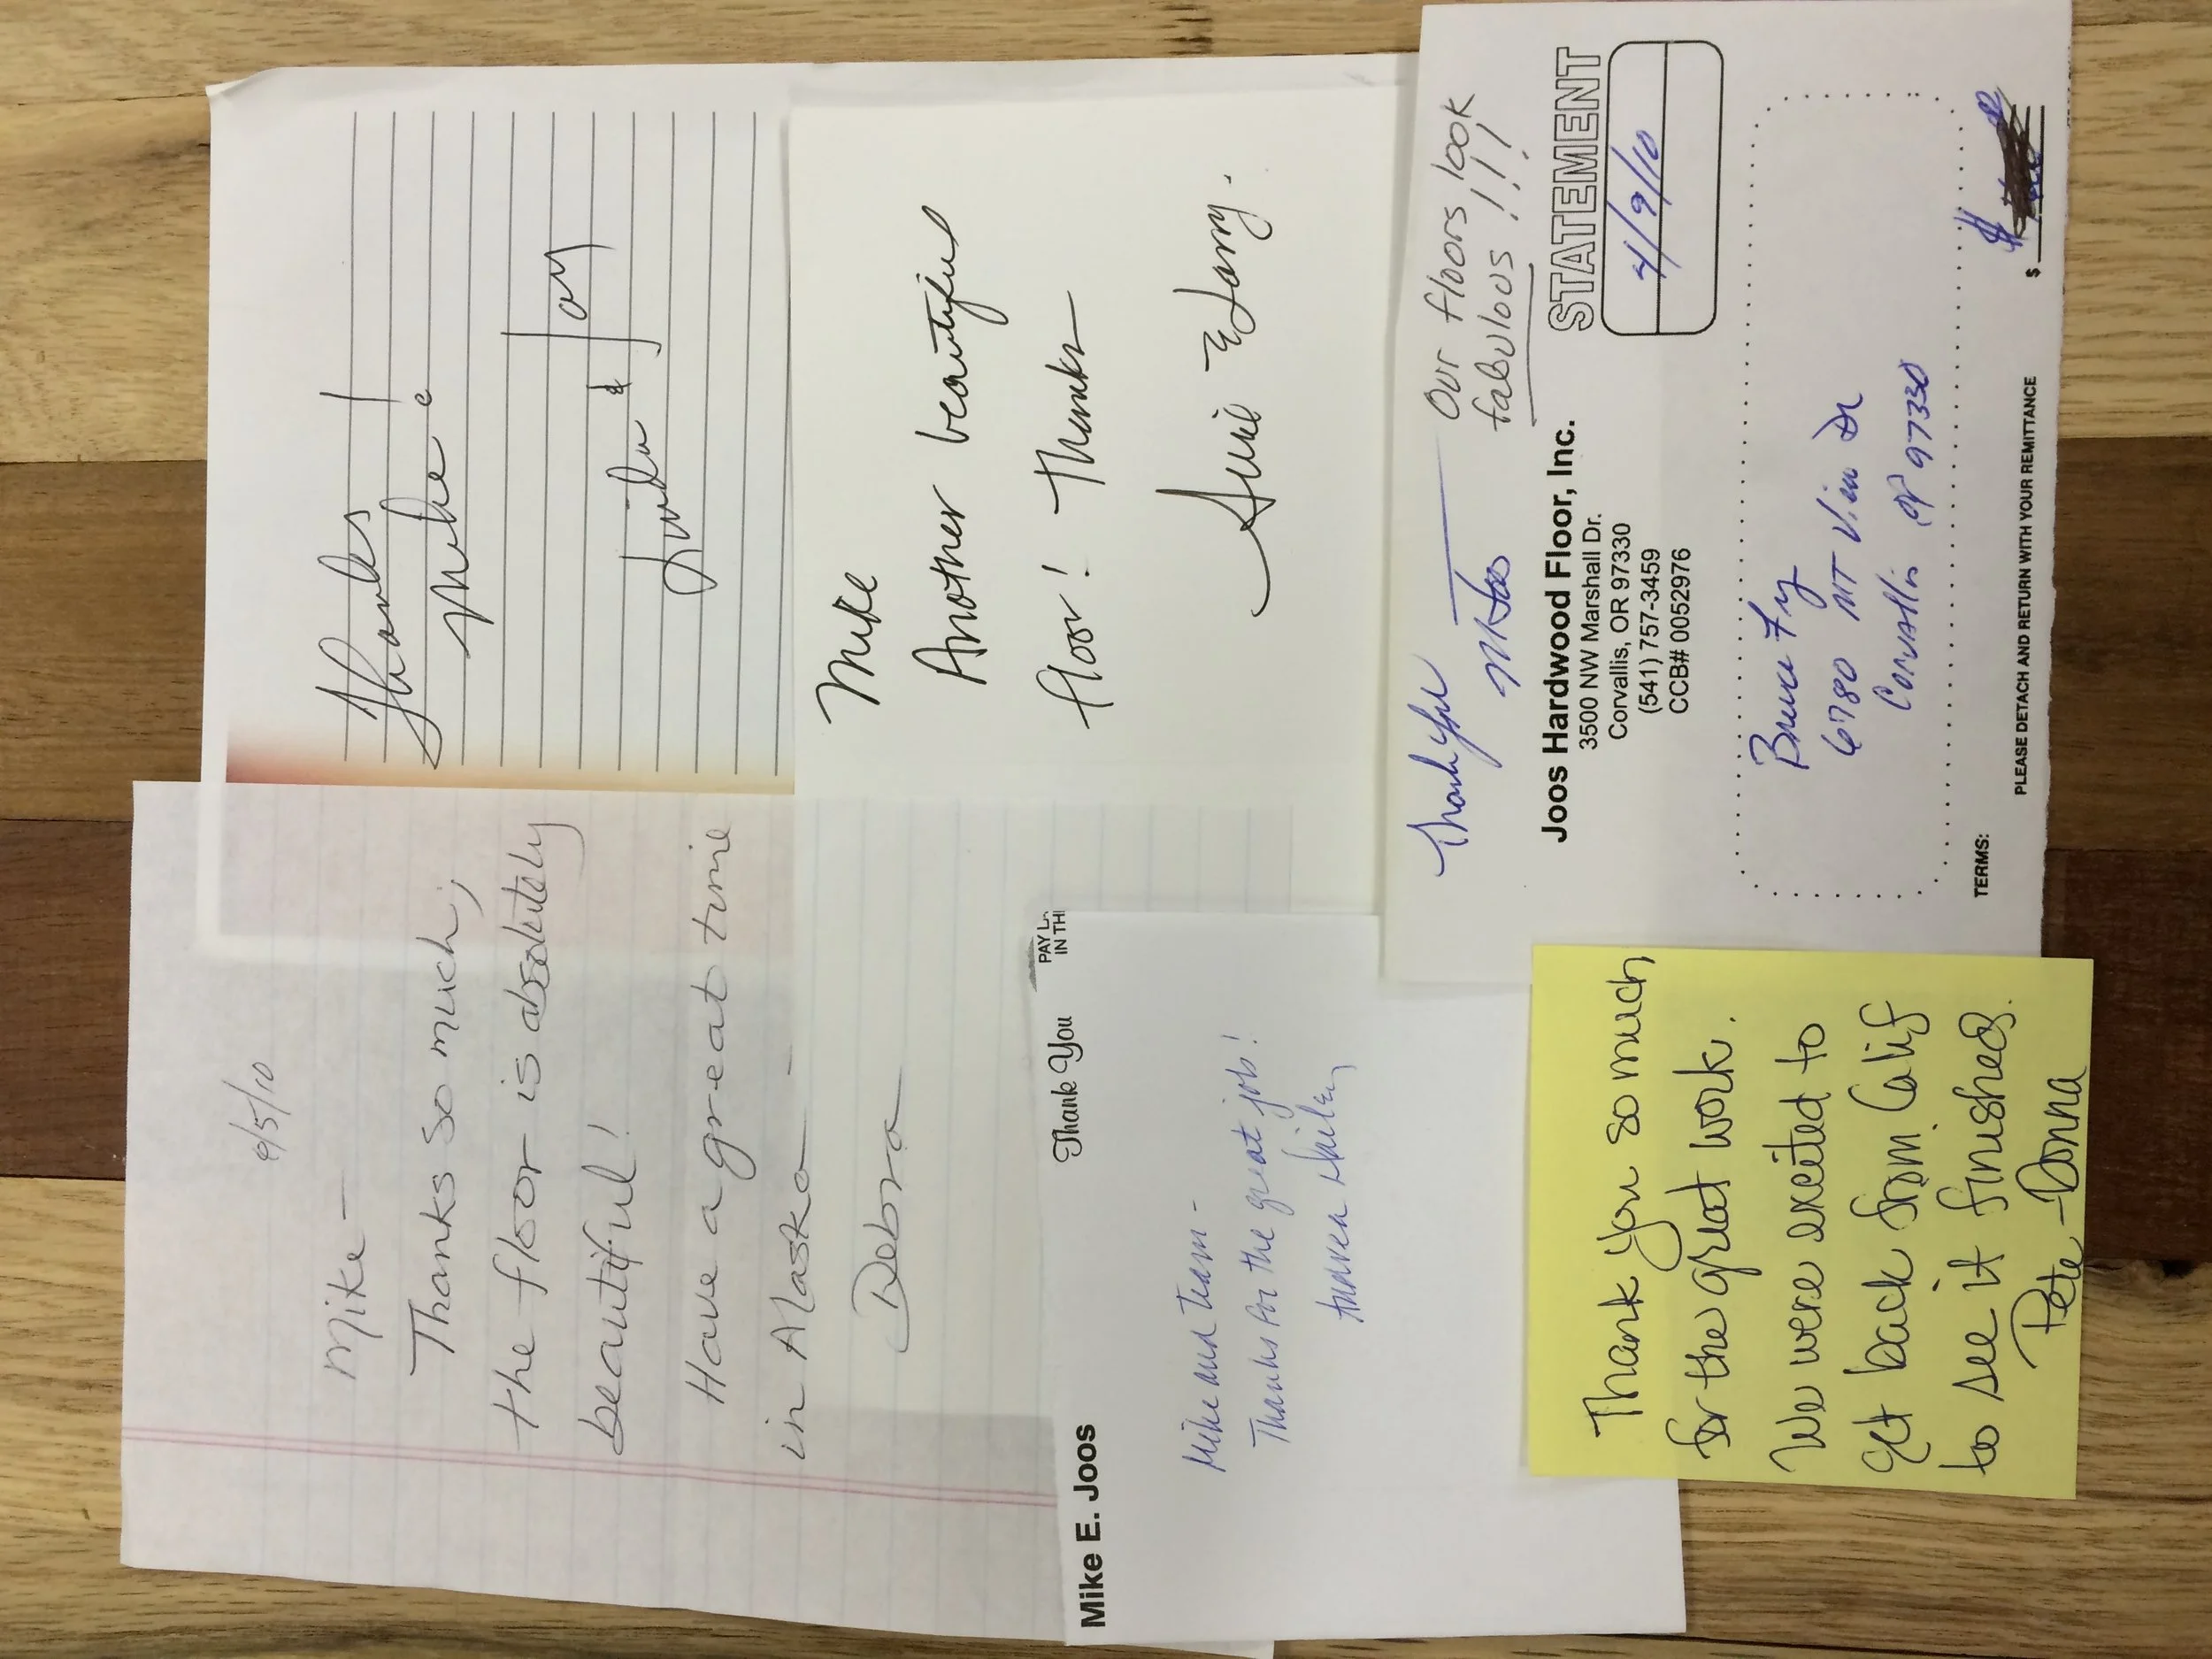 4/5/10
Mike —
Thanks so much,
the floor is absolutely
beautiful!
Have a great time
in Alaska —
Debra
Thanks!
Mike
Linda & Jay
Mike
Another beautiful
floor! Thanks
Annie & Larry.
Mike E. Joos
Thank You
PAY
IN TH
Mike and Team -
Thanks for the great job!
Thank You
M Joos
Our floors look
fabulous!!!
Joos Hardwood Floor, Inc.
3500 NW Marshall Dr.
Corvallis, OR 97330
(541) 757-3459
CCB# 00052976
STATEMENT
4/9/10
Bruce Fry
6780 MT View Dr
Corvallis OR 97330
TERMS:
$
PLEASE DETACH AND RETURN WITH YOUR REMITTANCE
Thank you so much
for the great work.
We were excited to
get back from Calif
to see it finished.
Pete Donna